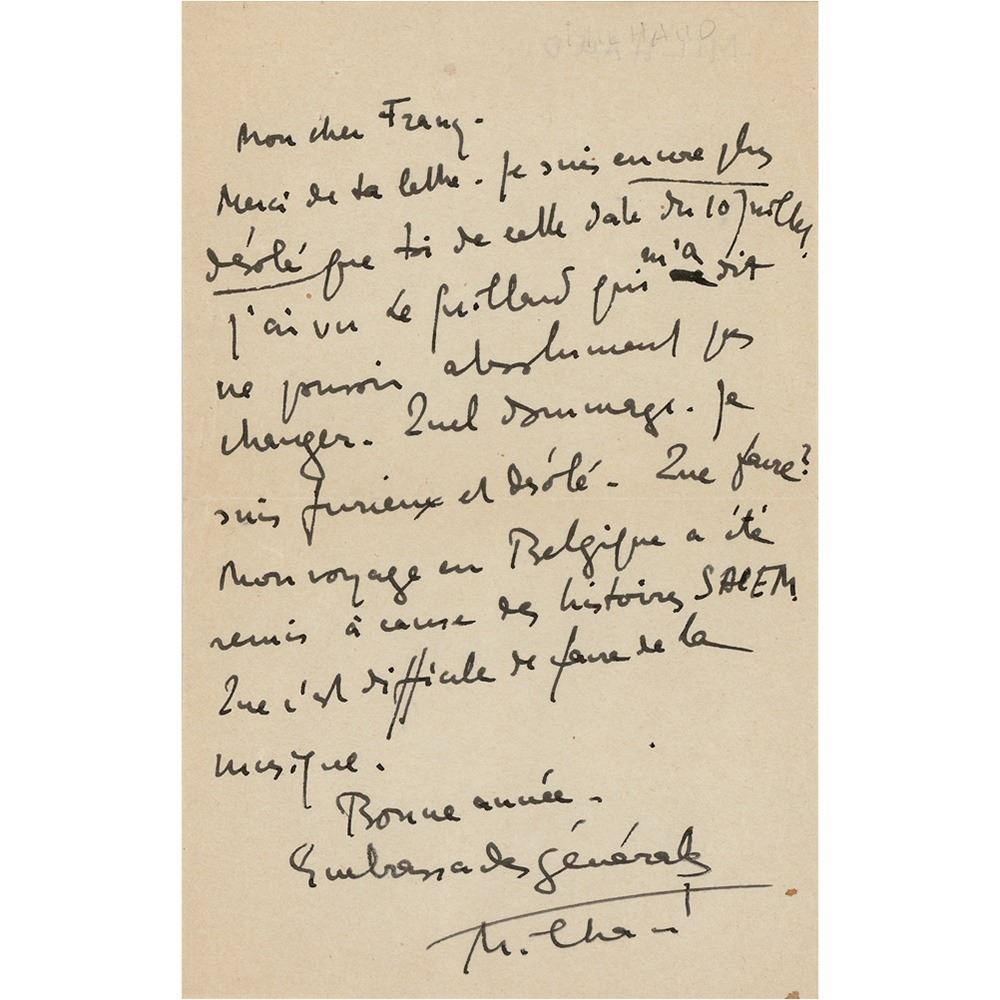 MILHAUD
Mon cher Franz.
Merci de ta lettre. Je suis encore plus
désolé que toi de cette date du 10 Juillet.
J'ai vu Le Guillard qui m'a dit
ne pouvoir absolument pas
changer. Quel dommage. Je
suis furieux et désolé. Que faire?
Mon voyage en Belgique a été
remis à cause des histoires SACEM.
Que c'est difficile de faire de la
musique.
Bonne année.
Embrassades générales
Milhaud